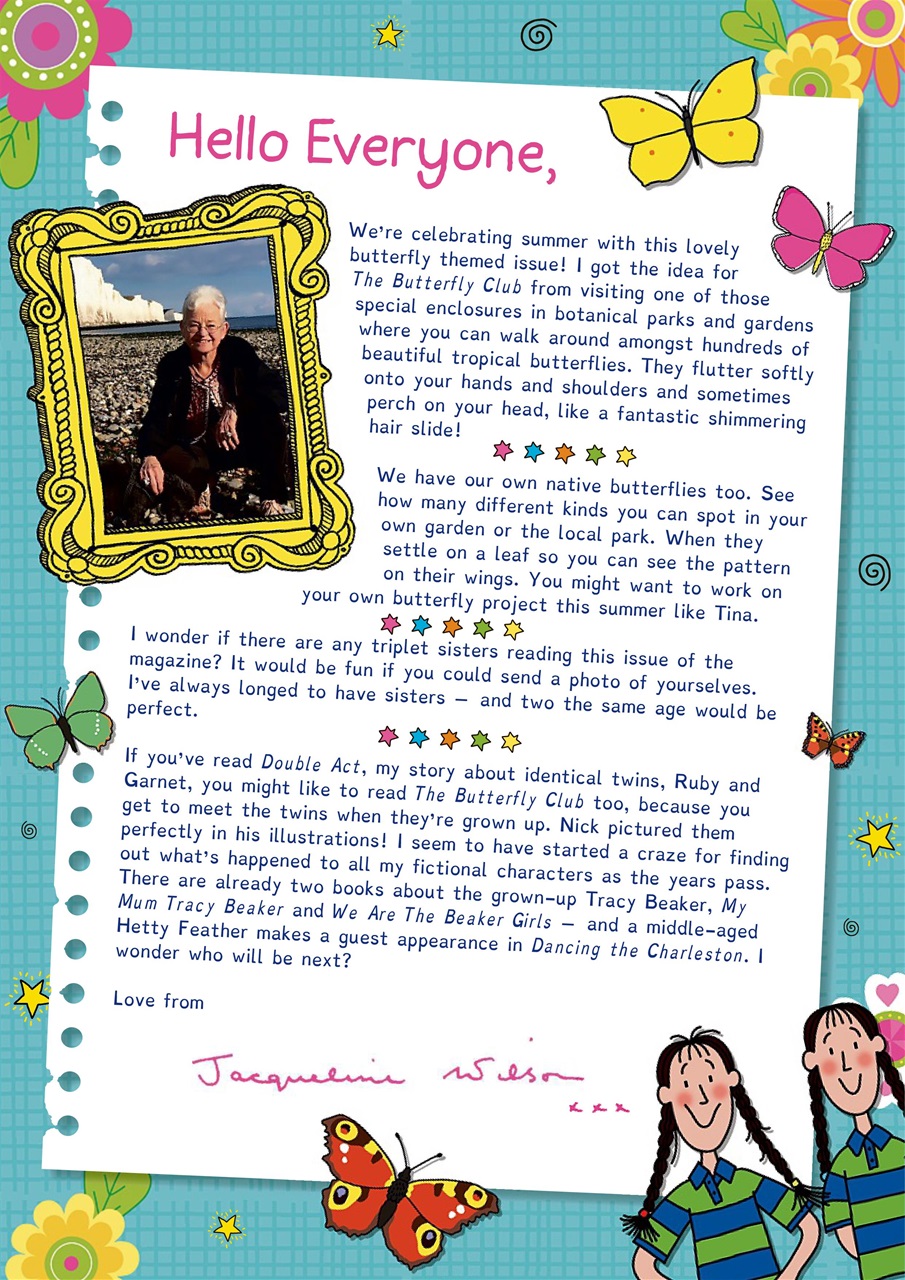 Hello Everyone,
We're celebrating summer with this lovely
butterfly themed issue! I got the idea for
The Butterfly Club from visiting one of those
special enclosures in botanical parks and gardens
where you can walk around amongst hundreds of
beautiful tropical butterflies. They flutter softly
onto your hands and shoulders and sometimes
perch on your head, like a fantastic shimmering
hair slide!
We have our own native butterflies too. See
how many different kinds you can spot in your
own garden or the local park. When they
settle on a leaf so you can see the pattern
on their wings. You might want to work on
your own butterfly project this summer like Tina.
I wonder if there are any triplet sisters reading this issue of the
magazine? It would be fun if you could send a photo of yourselves.
I've always longed to have sisters – and two the same age would be
perfect.
If you've read Double Act, my story about identical twins, Ruby and
Garnet, you might like to read The Butterfly Club too, because you
get to meet the twins when they're grown up. Nick pictured them
perfectly in his illustrations! I seem to have started a craze for finding
out what's happened to all my fictional characters as the years pass.
There are already two books about the grown-up Tracy Beaker, My
Mum Tracy Beaker and We Are The Beaker Girls – and a middle-aged
Hetty Feather makes a guest appearance in Dancing the Charleston. I
wonder who will be next?
Love from
Jacqueline Wilson
x x x